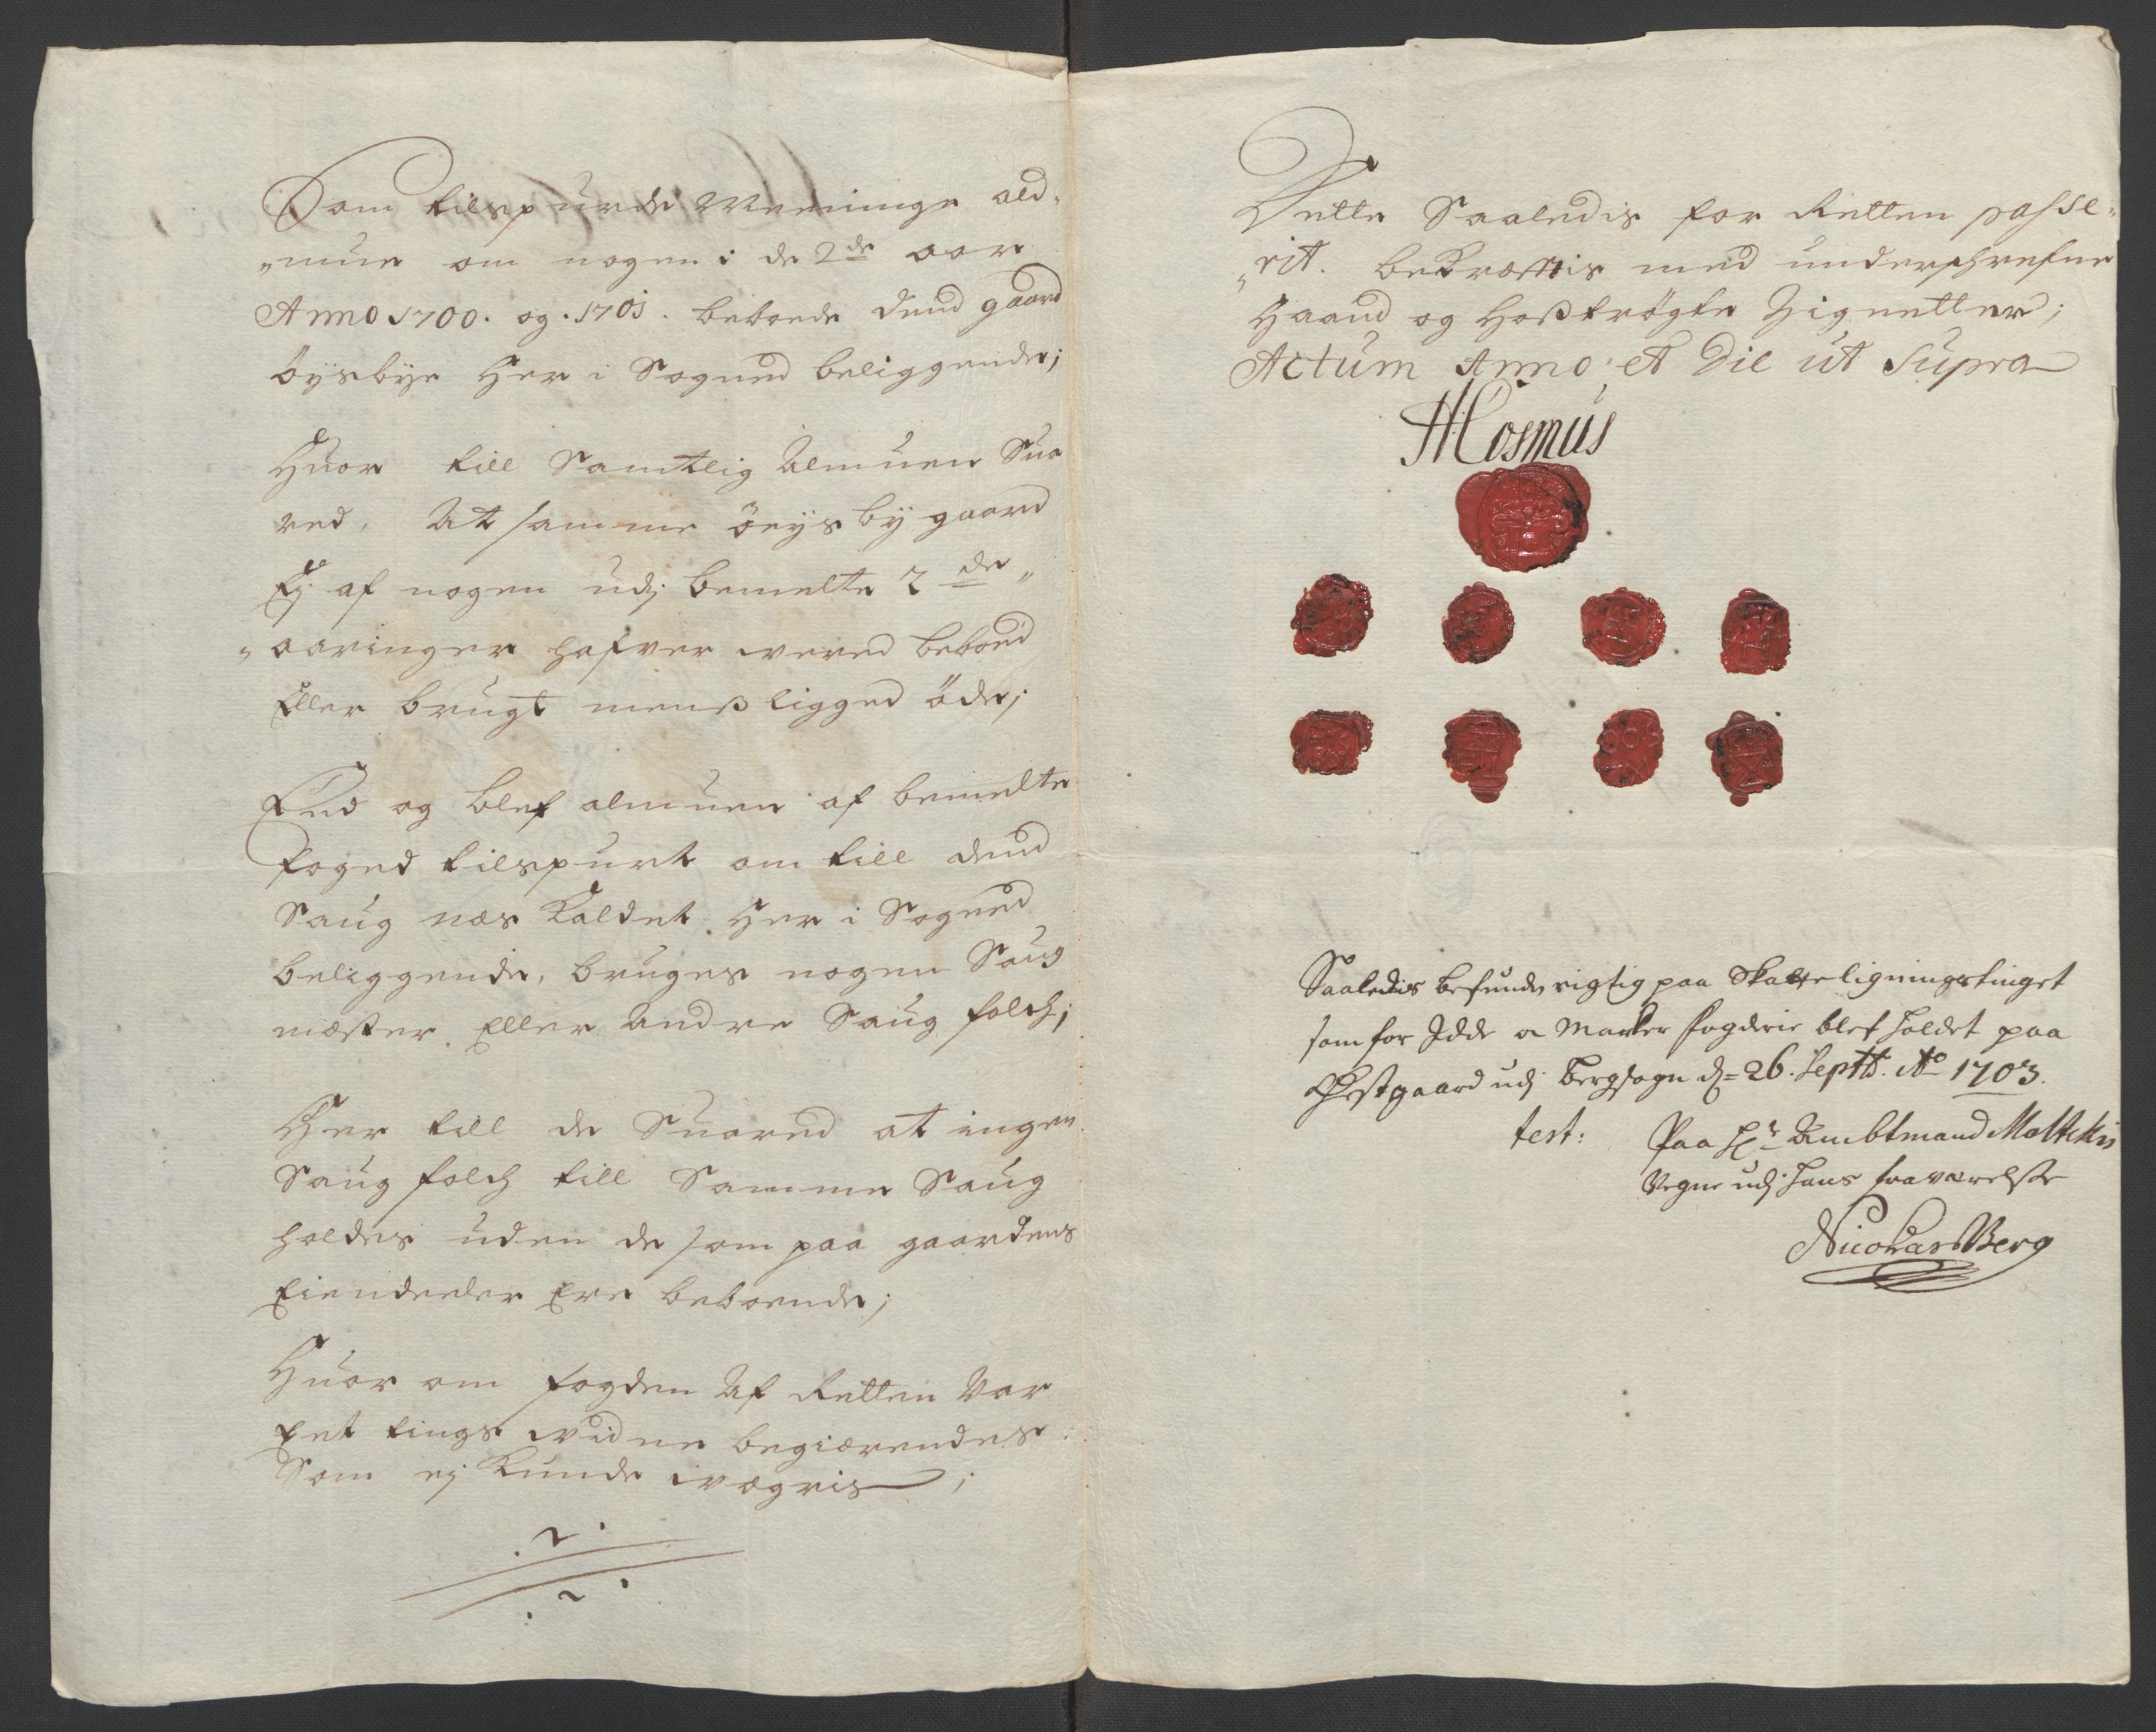 Som tilspurde Meeninge ald„
„muen om nogen i de 2de aar
Anno 1700. og. 1701. beboede dend gaard
öysbye Her i Sogned beliggende;
Huor till Samtlig Almuen Sua
red, At samme öeysby gaard
Ej af nogen udj bemelte 2de„
„aaringer hafver vered beboed
Eller brugt menß ligged öde;
End og blef almuen af bemelte
foged tilspurt om till dend
Saug næs Kaldet Her i Sogned
beliggende, bruges nogen Saug
mester Eller Andre Saug folch;
Her till de Suared at ingen
Saug folch till Samme Saug
holdes uden de som paa gaardens
Eiendeeler Ere beboende;
Huor om fogden Af Retten Var
Eet tings vidne begiærendes
Som ej Kunde vægris;
Dette Saaledis for Retten passe„
„rit. bekræfftis med underschrefne
Haand og Hoßtrögte Zignetter;
Actum Anno et Die ut Supra
HCosmus
Saaledis befunden rigtig paa Skatteligningstinget
som for Idde o Marker fogderie blef holdet paa
Prestgaard udj Bergsogn d= 26. Septb. Ao 1703.
test: Paa Hr Ambtmand Moltkis
Vegne udj hans fraværelse
Nicolas Berg